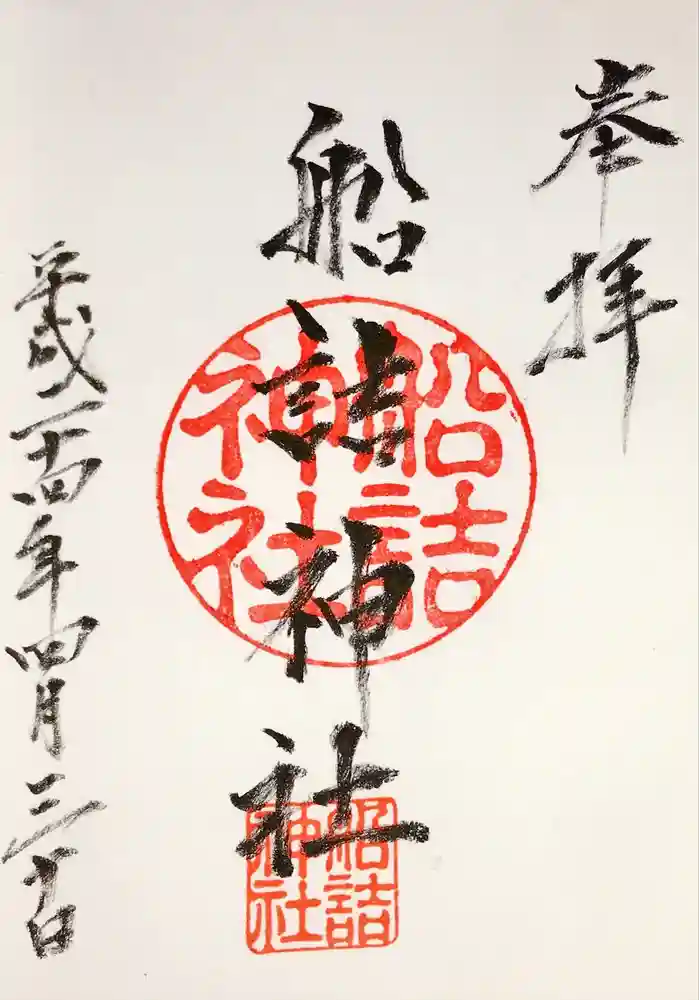 奉拝
船詰神社
船詰
神社
船詰
神社
平成二十四年四月三十日